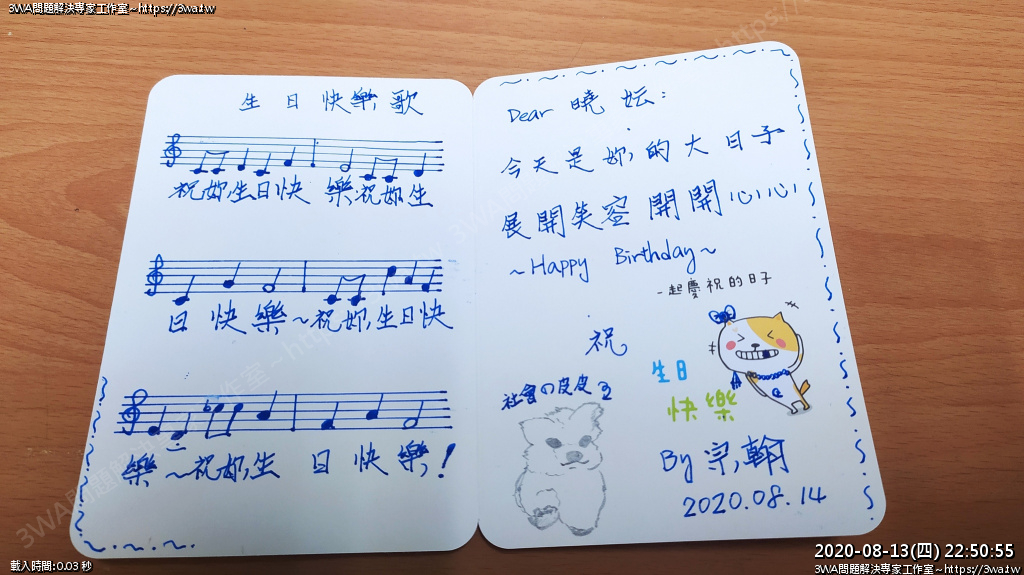 3WA問題解決專家工作室~https://3wa.tw
生日快樂歌
祝妳生日快 樂祝妳生
日快樂~祝妳生日快
樂~祝妳生日快樂!
Dear 曉妘:
今天是妳的大日子
展開笑容開開心心
~Happy Birthday~
一起慶祝的日子
祝
生日
快樂
社會の皮皮
By 宗翰
2020.08.14
2020-08-13(四) 22:50:55
載入時間:0.03 秒
3WA問題解決專家工作室~https://3wa.tw